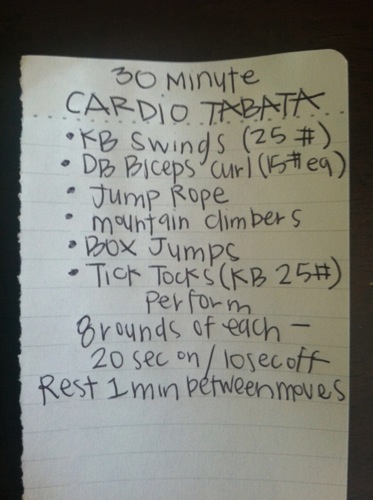 30 Minute
CARDIO TABATA
• KB Swings (25 #)
• DB Biceps curl (15# ea)
• Jump Rope
• mountain climbers
• BOX Jumps
• TICK TOCKS (KB 25#)
Perform
8 rounds of each -
20 sec on / 10 sec off
Rest 1 min between moves